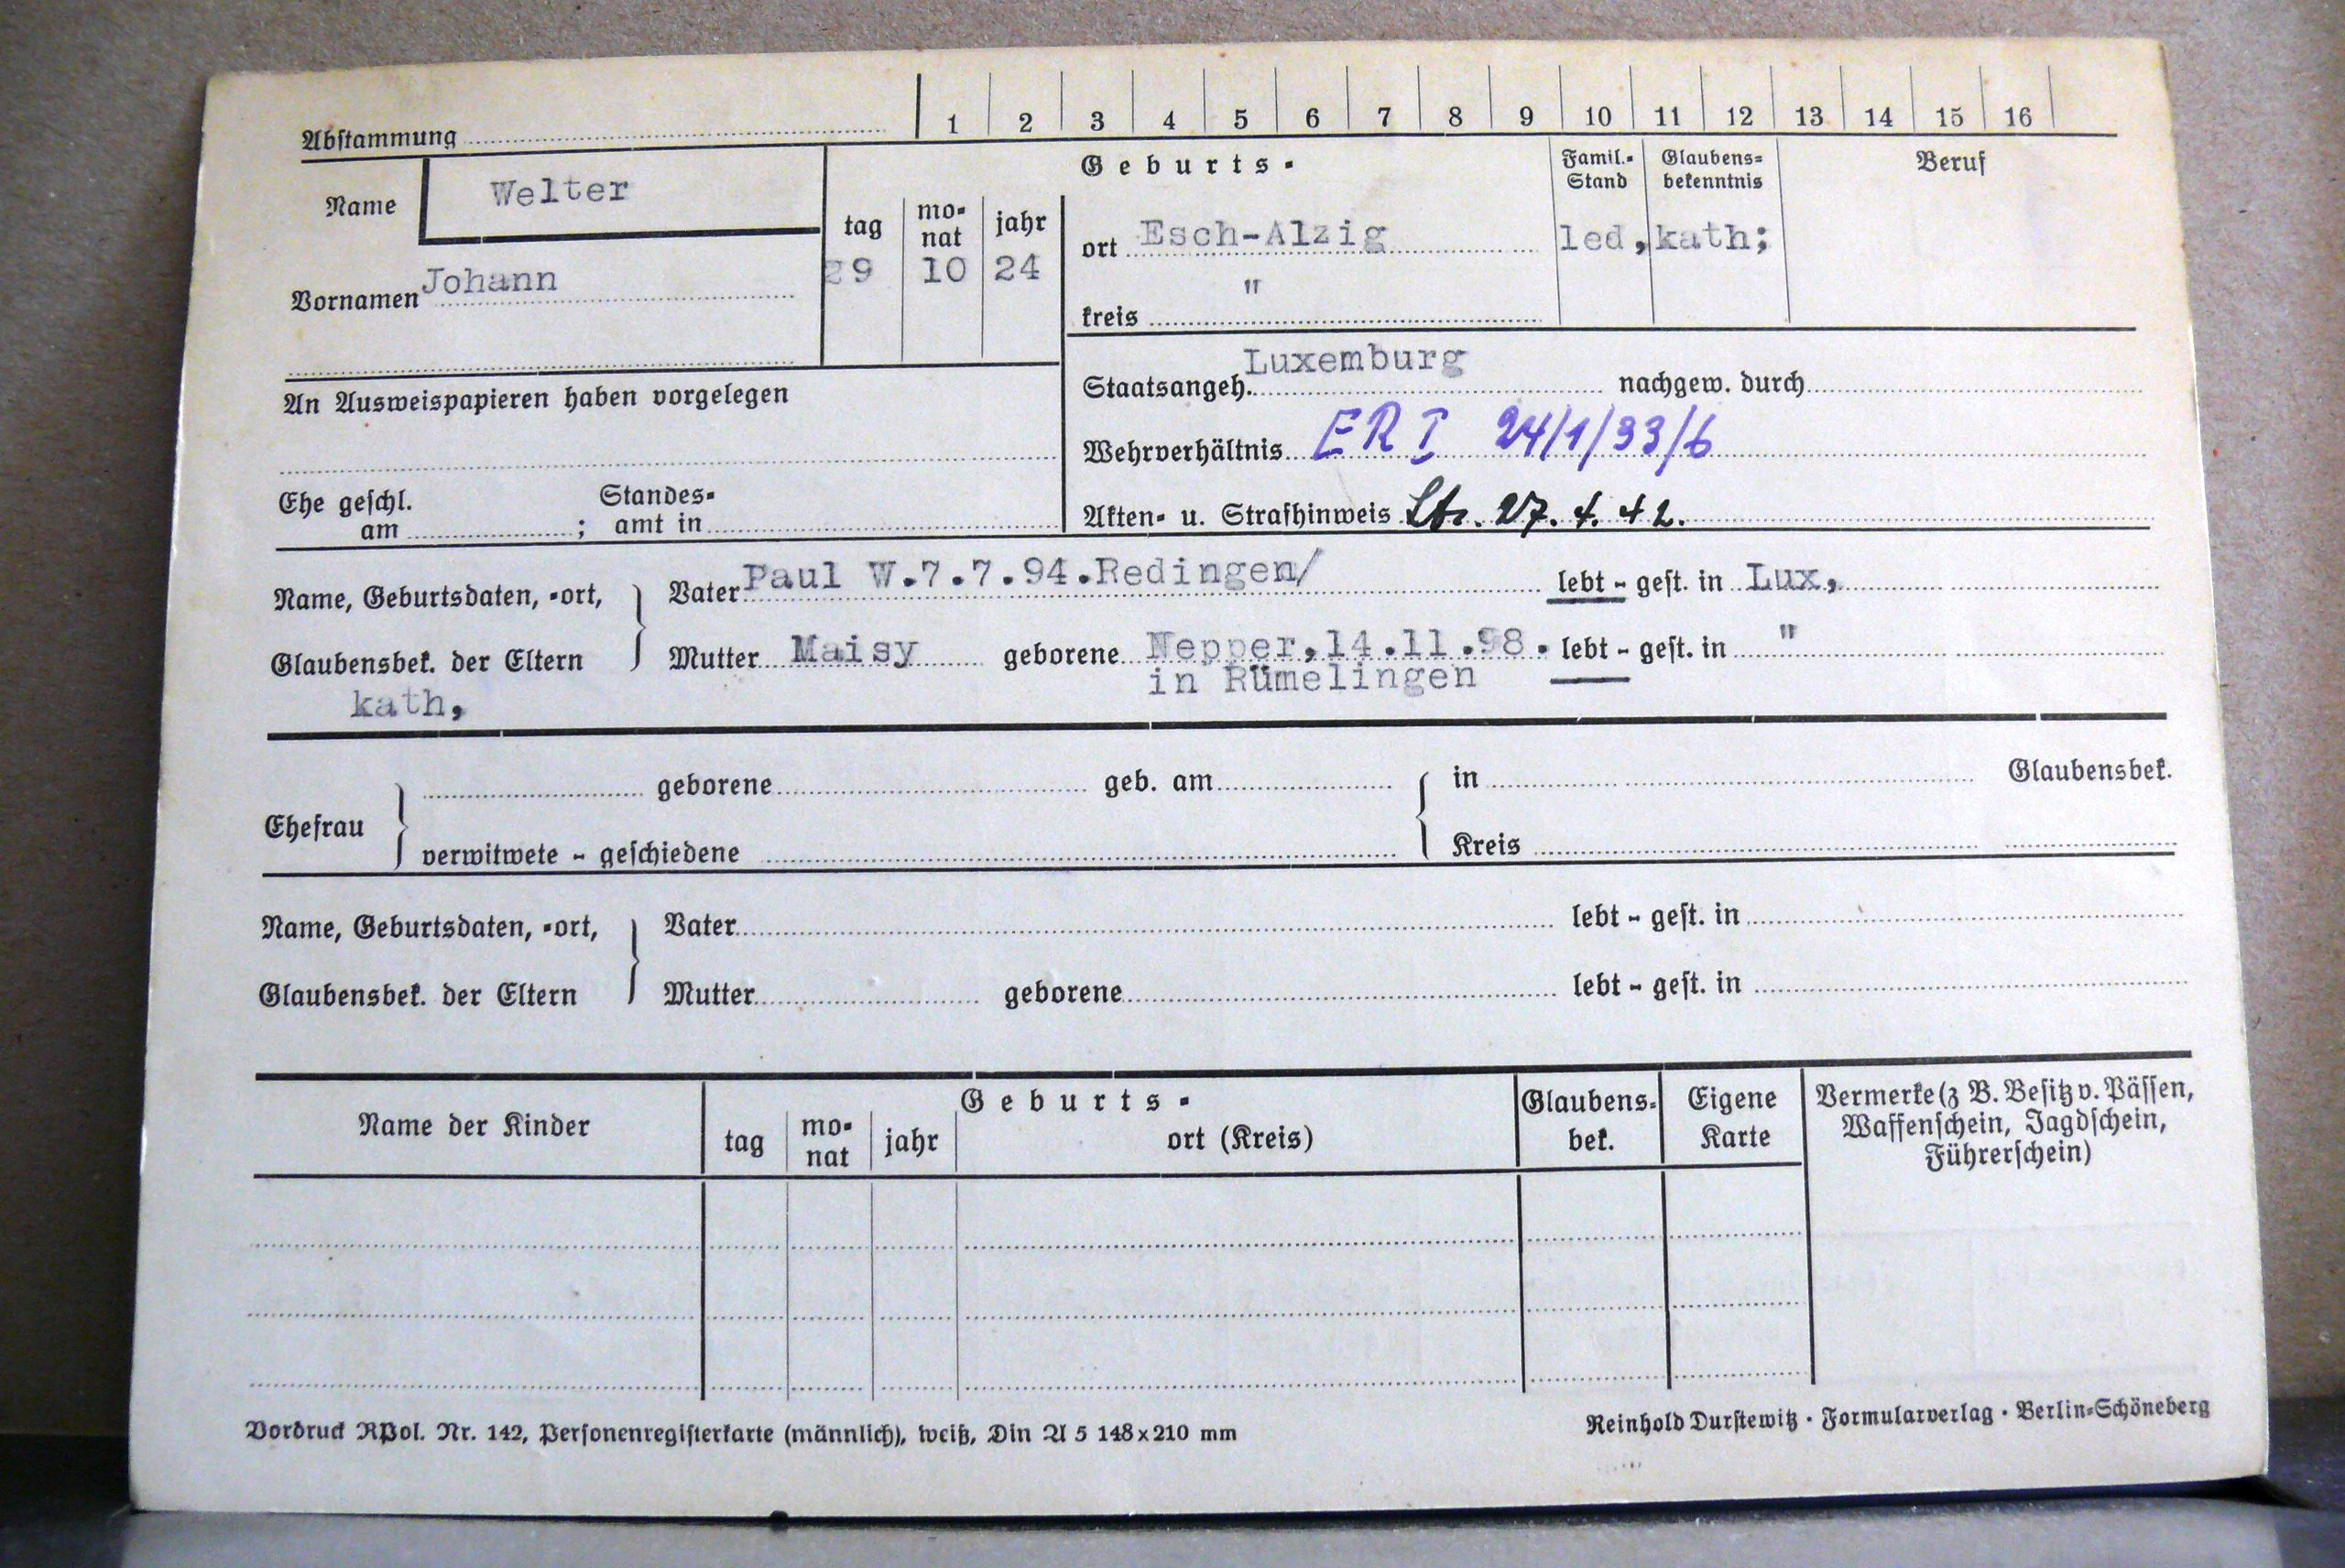 Abstammung 1 2 3 4 5 6 7 8 9 10 11 12 13 14 15 16
Name Welter
Geburts-
Famil.-Stand Glaubens-bekenntnis Beruf
tag mo-nat jahr ort Esch-Alzig led, kath;
Vornamen Johann 29 10 24
kreis "
Staatsangeh. Luxemburg nachgew. durch
An Ausweispapieren haben vorgelegen
Wehrverhältnis ER I 24/1/33/6
Ehe geschl. am ; Standes-amt in
Akten- u. Strafhinweis 27. 4. 42.
Name, Geburtsdaten, -ort, Vater Paul W.7.7.94.Redingen/ lebt - gest. in Lux,
Glaubensbek. der Eltern Mutter Maisy geborene Nepper,14.11.98. lebt - gest. in "
in Rümelingen
kath,
geborene geb. am in Glaubensbek.
Ehefrau
verwitwete - geschiedene Kreis
Name, Geburtsdaten, -ort, Vater lebt - gest. in
Glaubensbek. der Eltern Mutter geborene lebt - gest. in
Name der Kinder
Geburts-
tag mo-nat jahr ort (Kreis)
Glaubens-bek.
Eigene Karte
Vermerke (z B. Besitz v. Pässen,
Waffenschein, Jagdschein,
Führerschein)
Vordruck RPol. Nr. 142, Personenregisterkarte (männlich), weiß, Din A 5 148x210 mm
Reinhold Durstewitz · Formularverlag · Berlin-Schöneberg